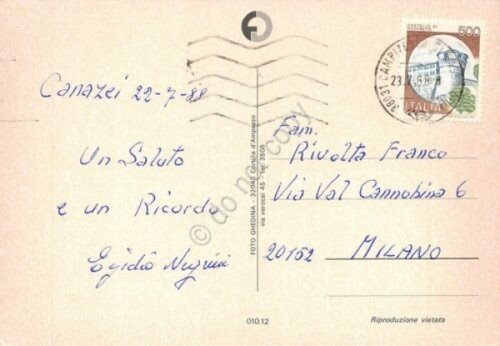 Canazei 22-7-88
Un Saluto
e un Ricordo
Egidio
FOTO GHEDINA - 32043 Cortina d'Ampezzo
010.12
500
ITALIA
38031
23.7.88
Fam.
Rivolta Franco
Via Val Cannobina 6
20152 MILANO
Riproduzione vietata
do not copy